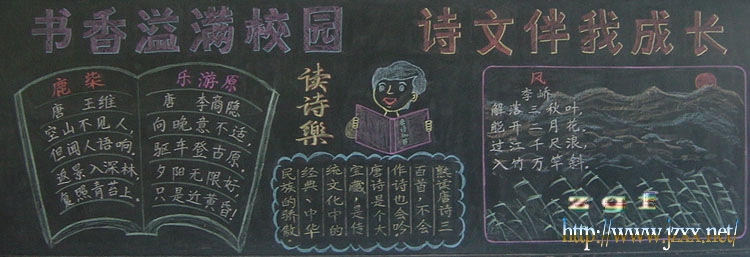 书香溢满校园 诗文伴我成长
鹿柴
唐 王维
空山不见人,
但闻人语响.
返景入深林,
复照青苔上.
乐游原
唐 李商隐
向晚意不适,
驱车登古原.
夕阳无限好,
只是近黄昏!
读诗樂
熟读唐诗三
百首,不会
作诗也会吟
唐诗是个大
宝藏,是传
统文化中的
经典、中华
民族的骄傲.
风
李峤
解落三秋叶,
能开二月花.
过江千尺浪,
入竹万竿斜.
zgt
http://www.jzxx.net/